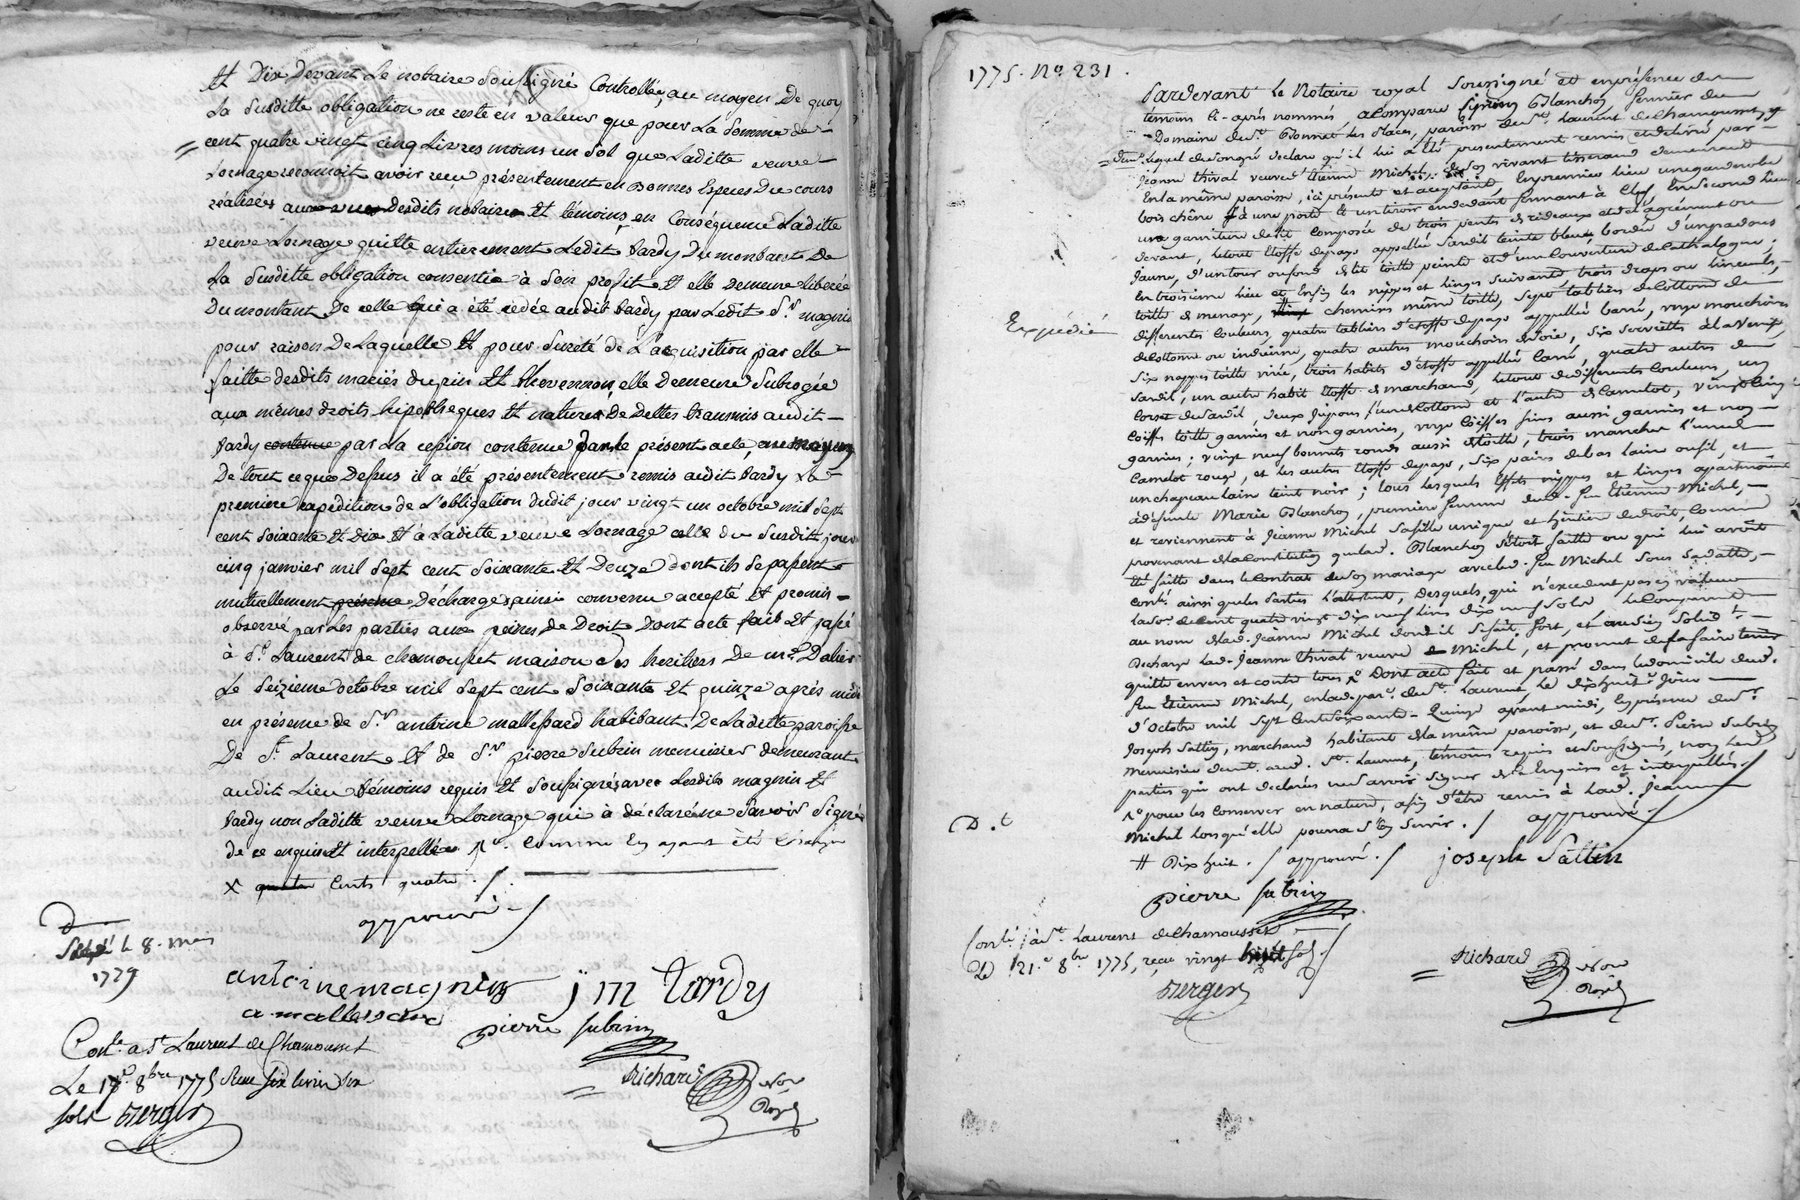 Et Dix Devant Le notaire Soussigné Controllée, au moyen De quoy
La Susditte obligation ne reste en valeur que pour La Somme de
cent quatre vingt cinq Livres moins un Sol que Laditte veuve
Lornage reconnoit avoir reçu présentement en Bonnes Espèces Du cours
réalisées aux vues desdits notaire Et témoins, en Conséquence Laditte
veuve Lornage quitte entierement Ledit tardy Du montant De
La Susditte obligation consentie à Son profit Et elle Demeure libérée
Du montant De celle qui a été cedée audit tardy par Ledit Sr. magnin
pour raison De Laquelle Et pour Sureté de L'acquisition par elle
faitte desdits mariés dupin Et thevennon, elle Demeure Subrogée
aux mêmes droits hipothèques Et nature De Dettes transmis audit
tardy contenue par La cession contenue dans le présent acte, au moyen
De tout ce que Dessus il a été présentement remis audit tardy La
premiere expédition de L'obligation dudit jour vingt un octobre mil Sept
cent Soixante Et Dix Et à Laditte veuve Lornage celle du Susdit jour
cinq janvier mil Sept cent Soixante Et Douze dont ils Se passent
mutuellement présente Décharge, ainsi convenu accepté Et promis
observé par Les parties aux peines de Droit Dont acte fait Et passé
à St. Laurent de chamousset maison des heritiers De me. Dalier
Le Seizieme octobre mil Sept cent Soixante Et quinze après midi
en présence de Sr. antoine mallessard habitant De Laditte paroisse
De St. Laurent Et de Sr. pierre Subrin menuisier demeurant
audit Lieu témoins requis Et Soussignés avec Lesdits magnin Et
tardy non Laditte veuve Lornage qui à déclaré ne Savoir Signer
de ce enquise Et interpellée
X quatre Cents quatre ./.
approuvé ./
D
le 8. mai
1779
antoine magnin
j m tardy
a. mallessard
pierre subrin
Conlé. a St Laurent de Chamousset
Le 17e. 8bre 1775 Reçu six livres six
sols Berger
Richard
Nore
Royal
1775. No. 231.
Pardevant Le Notaire royal Soussigné et en présence des
temoins ci-après nommés, a Comparu Blanchon fermier du
Domaine du Sr. Bonnet des Places, paroisse de St. Laurent de Chamousset
lequel de son gré declare qu'il lui a été presentement remis et delivré par
Jeanne thival veuve d'Etienne Michel, de son vivant tisserand demeurant
En la même paroisse, ici présente et acceptante, En premier lieu une garderobe
bois chêne à une porte & un tiroir en dedant fermant à Clef, En second lieu
une garniture de lit composée de trois pents de rideaux
devant, le tout Etoffe de pays appellée Sardil teinte bleue bordée d'un padoue
Jaune, d'un tour ou fond de lit toille peinte et d'une Couverture de Cathalogne;
En troisieme lieu et Enfin les nippes et linges suivants trois draps ou linceuls,
toille de menage, chemises même toille, Sept tabliers de Cottonne de
Expédié
differents Couleurs, quatre tabliers d'étoffe de pays appellée barré, onze mouchoirs
de Cottonne ou indienne, quatre autres mouchoirs de Soie, Six Serviettes à la Venise,
Six nappes toille unie, trois habits d'étoffe appellée barré, quatre autres de
Sardil, un autre habit Etoffe de marchand, le tout de differents Couleurs, un
Corset de Sardil, deux Jupons l'un de Cottonne et l'autre de Camelot, vingt cinq
Coiffes toille garnies et non garnies, onze Coiffes fines aussi garnies et non
garnies; vingt neuf bonnets ronds aussi de toille, trois manches l'une de
Camelot rouge, et les autres Etoffe de pays, Six paires de bas laine ou fil, et
un chapeau laine teint noir; tous lesquels Effets nippes et linges appartenoient
à défunte Marie Blanchon, premiere femme dud. feu Etienne Michel,
et reviennent à Jeanne Michel Sa fille unique et héritiere de droit, Comme
provenant de la Constitution que lad. Blanchon S'etoit faitte ou qui lui avoit
Eté faitte dans le Contrat de Son mariage avec led. feu Michel Sous Sa datte,
Conté. ainsi que les Parties l'attestent, desquels, qui n'excedent pas en valeur
la Somme de Cent quatre vingt dix neuf livres dix neuf Sols le Comparant
au nom de lad. Jeanne Michel dont il Se fait fort,
Decharge lad. Jeanne thival veuve Michel, et promet de la faire tenir
quitte envers et contre tous Dont acte fait et passé dans le domicile dud.
feu Etienne Michel, en lad. par. de St. Laurent, Le dix huite. Jour
d'Octobre mil Sept Cent Soixante-Quinze avant midi, En présence du Sr.
Joseph Sattin, marchand habitant de la même paroisse, et du Sr. Pierre Subrin
Menuisier demt. aud. St. Laurent, temoins requis et Soussignés, non les
parties qui ont declaré ne Savoir Signer de ce Enquises et interpellés.
pour les Conserver en nature, afin d'être remis à lad. Jeanne
D.t
Michel lorsqu'elle pourra S'en Servir. / approuvé ./
# Dix huit. / approuvé ./
joseph Sattin
pierre subrin
Conlé. à St. Laurent de Chamousset
Le 21.e 8bre 1775, reçu vingt sols
Berger
Richard
Nore
Royal